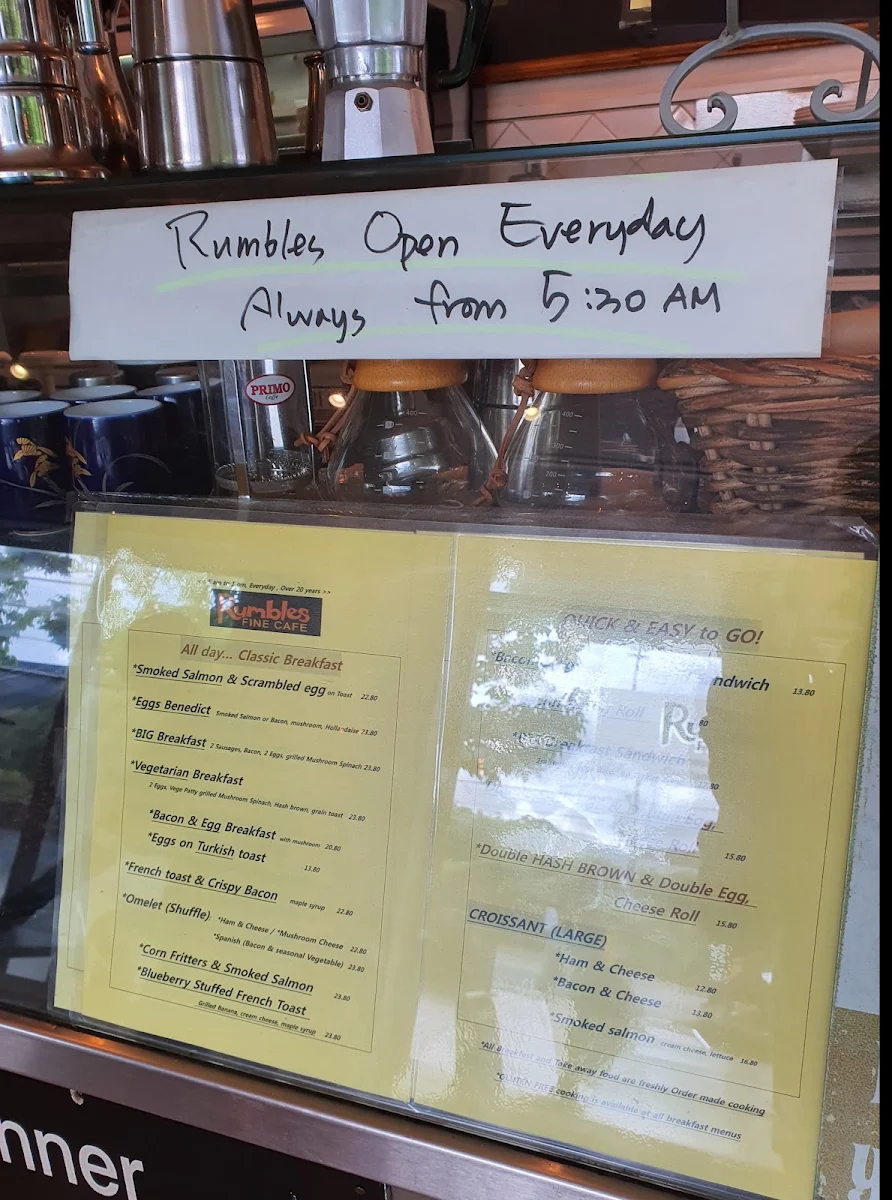 Rumbles Open Everyday
Always from 5:30 AM
PRIMO
Caffe
400
400
300
200
Everyday, Over 20 years >>
Rumbles
FINE CAFE
All day... Classic Breakfast
*Smoked Salmon & Scrambled egg on Toast 22.80
*Eggs Benedict Smoked Salmon or Bacon, mushroom, Hollandaise 23.80
*BIG Breakfast 2 Sausages, Bacon, 2 Eggs, grilled Mushroom Spinach 23.80
*Vegetarian Breakfast
2 Eggs, Vege Patty grilled Mushroom Spinach, Hash brown, grain toast 23.80
*Bacon & Egg Breakfast with mushroom 20.80
*Eggs on Turkish toast 13.80
*French toast & Crispy Bacon maple syrup 22.80
*Omelet (Shuffle) *Ham & Cheese / *Mushroom Cheese 22.80
*Spanish (Bacon & seasonal Vegetable) 23.80
*Corn Fritters & Smoked Salmon 23.80
*Blueberry Stuffed French Toast
Grilled Banana, cream cheese, maple syrup 23.80
QUICK & EASY to GO!
*Bacon Sandwich 13.80
Roll
Breakfast Sandwich
Egg,
Roll 15.80
*Double HASH BROWN & Double Egg,
Cheese Roll 15.80
CROISSANT (LARGE)
*Ham & Cheese 12.80
*Bacon & Cheese 13.80
*Smoked salmon cream cheese, lettuce 16.80
*All Breakfast and Take away food are freshly Order made cooking
*GLUTEN FREE cooking is available at all breakfast menus
nner